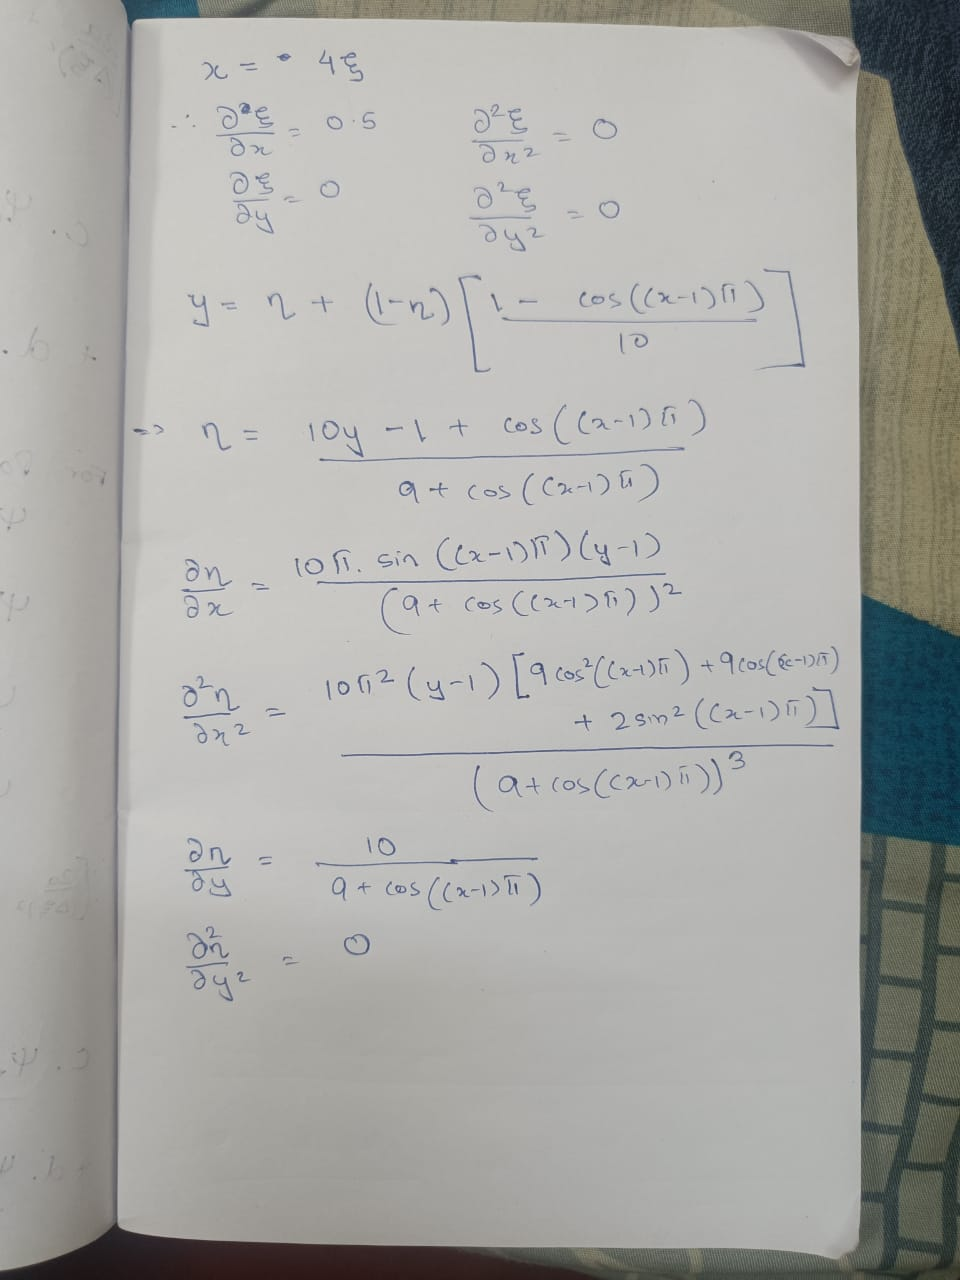 x = 4ξ
∴ ∂ξ/∂x = 0.5    ∂²ξ/∂x² = 0
∂ξ/∂y = 0    ∂²ξ/∂y² = 0
y = η + (1-η) [ (1 - cos((x-1)π)) / 10 ]
=> η = (10y - 1 + cos((x-1)π)) / (9 + cos((x-1)π))
∂η/∂x = (10π. sin((x-1)π)(y-1)) / (9 + cos((x-1)π))²
∂²η/∂x² = 10π²(y-1) [9 cos²((x-1)π) + 9 cos((x-1)π) + 2 sin²((x-1)π)] / (9 + cos((x-1)π))³
∂η/∂y = 10 / (9 + cos((x-1)π))
∂²η/∂y² = 0